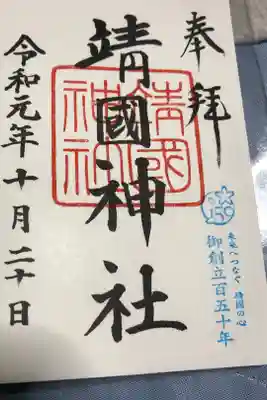 奉拝
靖國神社
靖國
神社
150
未来へつなぐ 靖国の心
御創立百五十年
令和元年十月二十日